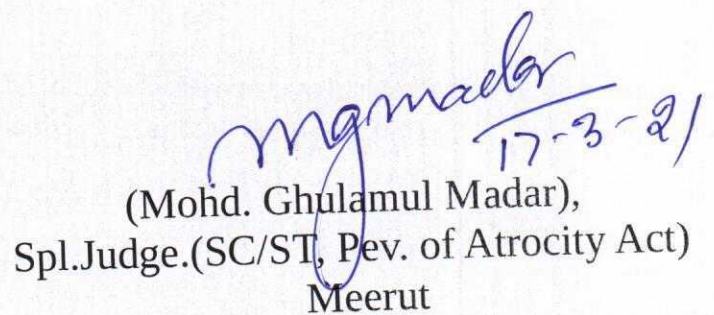 mgmadar
17-3-21
(Mohd. Ghulamul Madar),
Spl.Judge.(SC/ST, Pev. of Atrocity Act)
Meerut